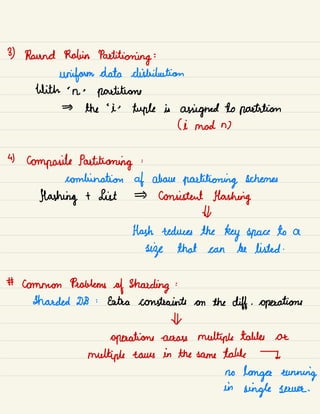 3) Round Robin Partitioning :
uniform data distribution
With 'n' partitions
⇒ the 'i' tuple is assigned to partition
(i mod n)
4) Composite Partitioning :
combination of above partitioning schemes
Hashing + List ⇒ Consistent Hashing
⇓
Hash reduces the key space to a
size that can be listed.
# Common Problems of Sharding :
Sharded DB : Extra constraints on the diff. operations
⇓
operations across multiple tables or
multiple rows in the same table
no longer running
in single server.